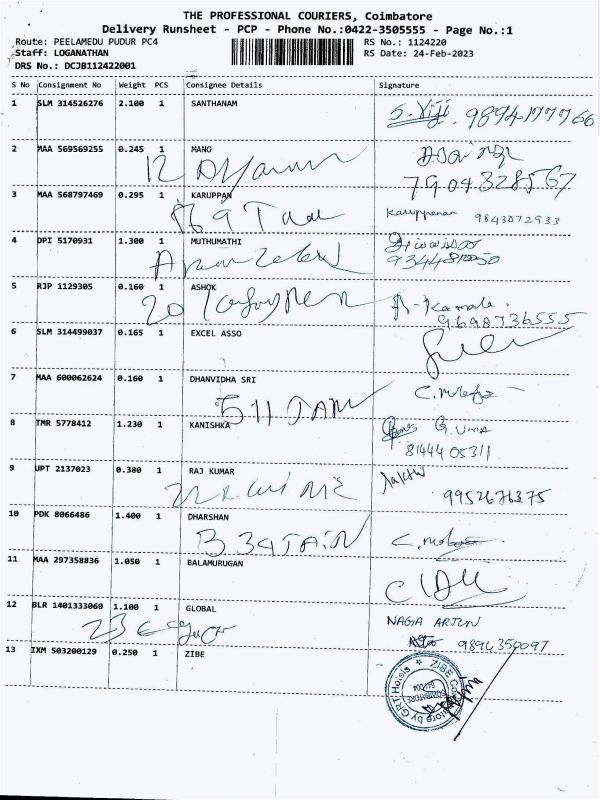 THE PROFESSIONAL COURIERS, Coimbatore
Delivery Runsheet - PCP - Phone No.:0422-3505555 - Page No.:1
Route: PEELAMEDU PUDUR PC4 RS No.: 1124220
Staff: LOGANATHAN RS Date: 24-Feb-2023
DRS No.: DCJB112422001
S No Consignment No Weight PCS Consignee Details Signature
1 SLM 314526276 2.100 1 SANTHANAM
S. Viji
2 MAA 569569255 0.245 1 MANO
12
7904328567
3 MAA 568797469 0.295 1 KARUPPAN
Karuppanan 9843072933
4 DPI 5170931 1.300 1 MUTHUMATHI
5 RJP 1129305 0.160 1 ASHOK
20 A-Kamala.
9698736555
6 SLM 314499037 0.165 1 EXCEL ASSO
7 MAA 600062624 0.160 1 DHANVIDHA SRI
511 JAN
8 TMR 5778412 1.230 1 KANISHKA
G. Uma
8144405311
9 UPT 2137023 0.380 1 RAJ KUMAR
9952676375
10 PDK 8066486 1.400 1 DHARSHAN
11 MAA 297358836 1.050 1 BALAMURUGAN
12 BLR 1401333060 1.100 1 GLOBAL
NAGA ARJUN
23 9894350097
13 IXM 503200129 0.250 1 ZIBE
ZIBE Coimbatore by GRT Hotels